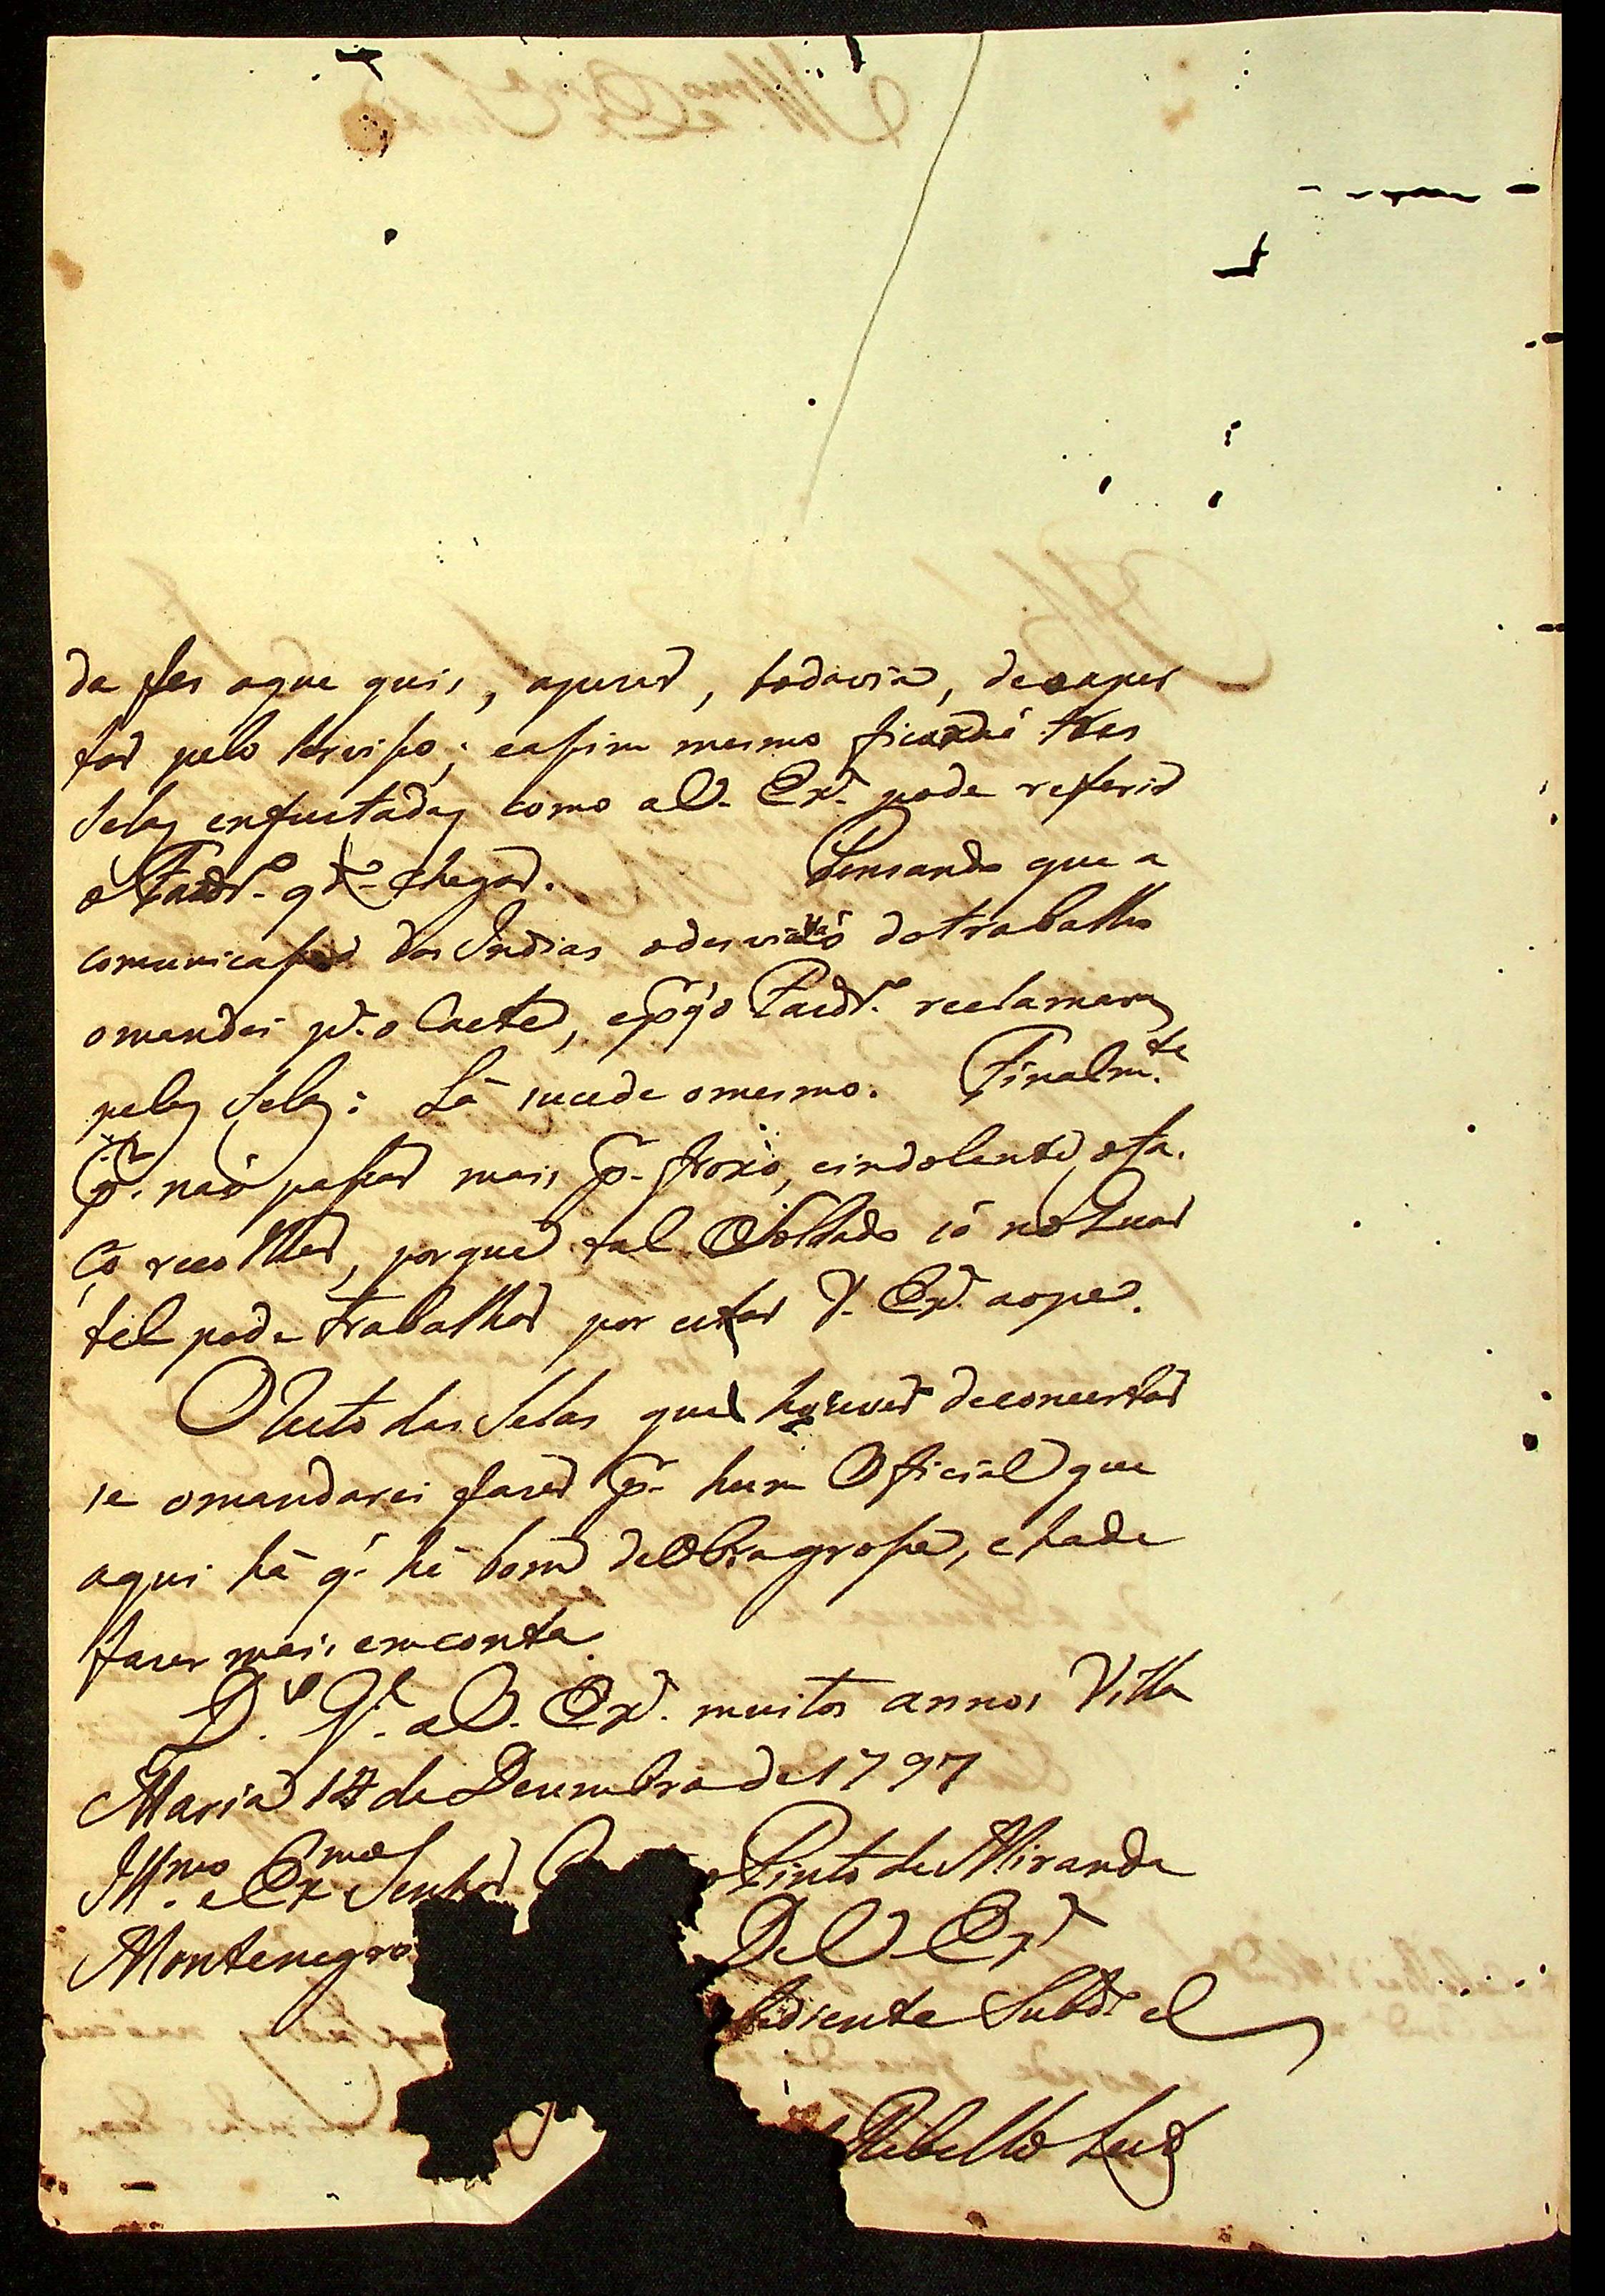 da fes oque quis, apezar, todavia, de o aper
tar pelo serviso; easim mesmo ficaraó tres
Selas enfustadas como a V. Exa. pode referir
o Furr.el q.do chegar. Pensando que a
comunicasaõ das Indias odesviava dotrabalho
omandei p.a o Caeté, e p.r q'o Furr.el reclamava
pelas Selas: Lá sucede omesmo. Finalm.te
p.a naõ pasar mais p.r froxo, eindolente, ofa.
ço recolher, porque tal Soldado só no Quar
tel pode trabalhar por estar V. Exa. aope.
O resto das Selas que houver deconcertar
se omandarei faser p.r hum Oficial que
aqui há q' hé bom deObra grosa, e hade
faser mais emconta.
D.s G.e a V. Exa. muitos annos Villa
Maria 17 de Dezembro de 1797
Ill.mo e Ex.mo Senhor Pinto de Miranda
Montenegro De V. Exa
bediente Subd.o
Rebello Leite